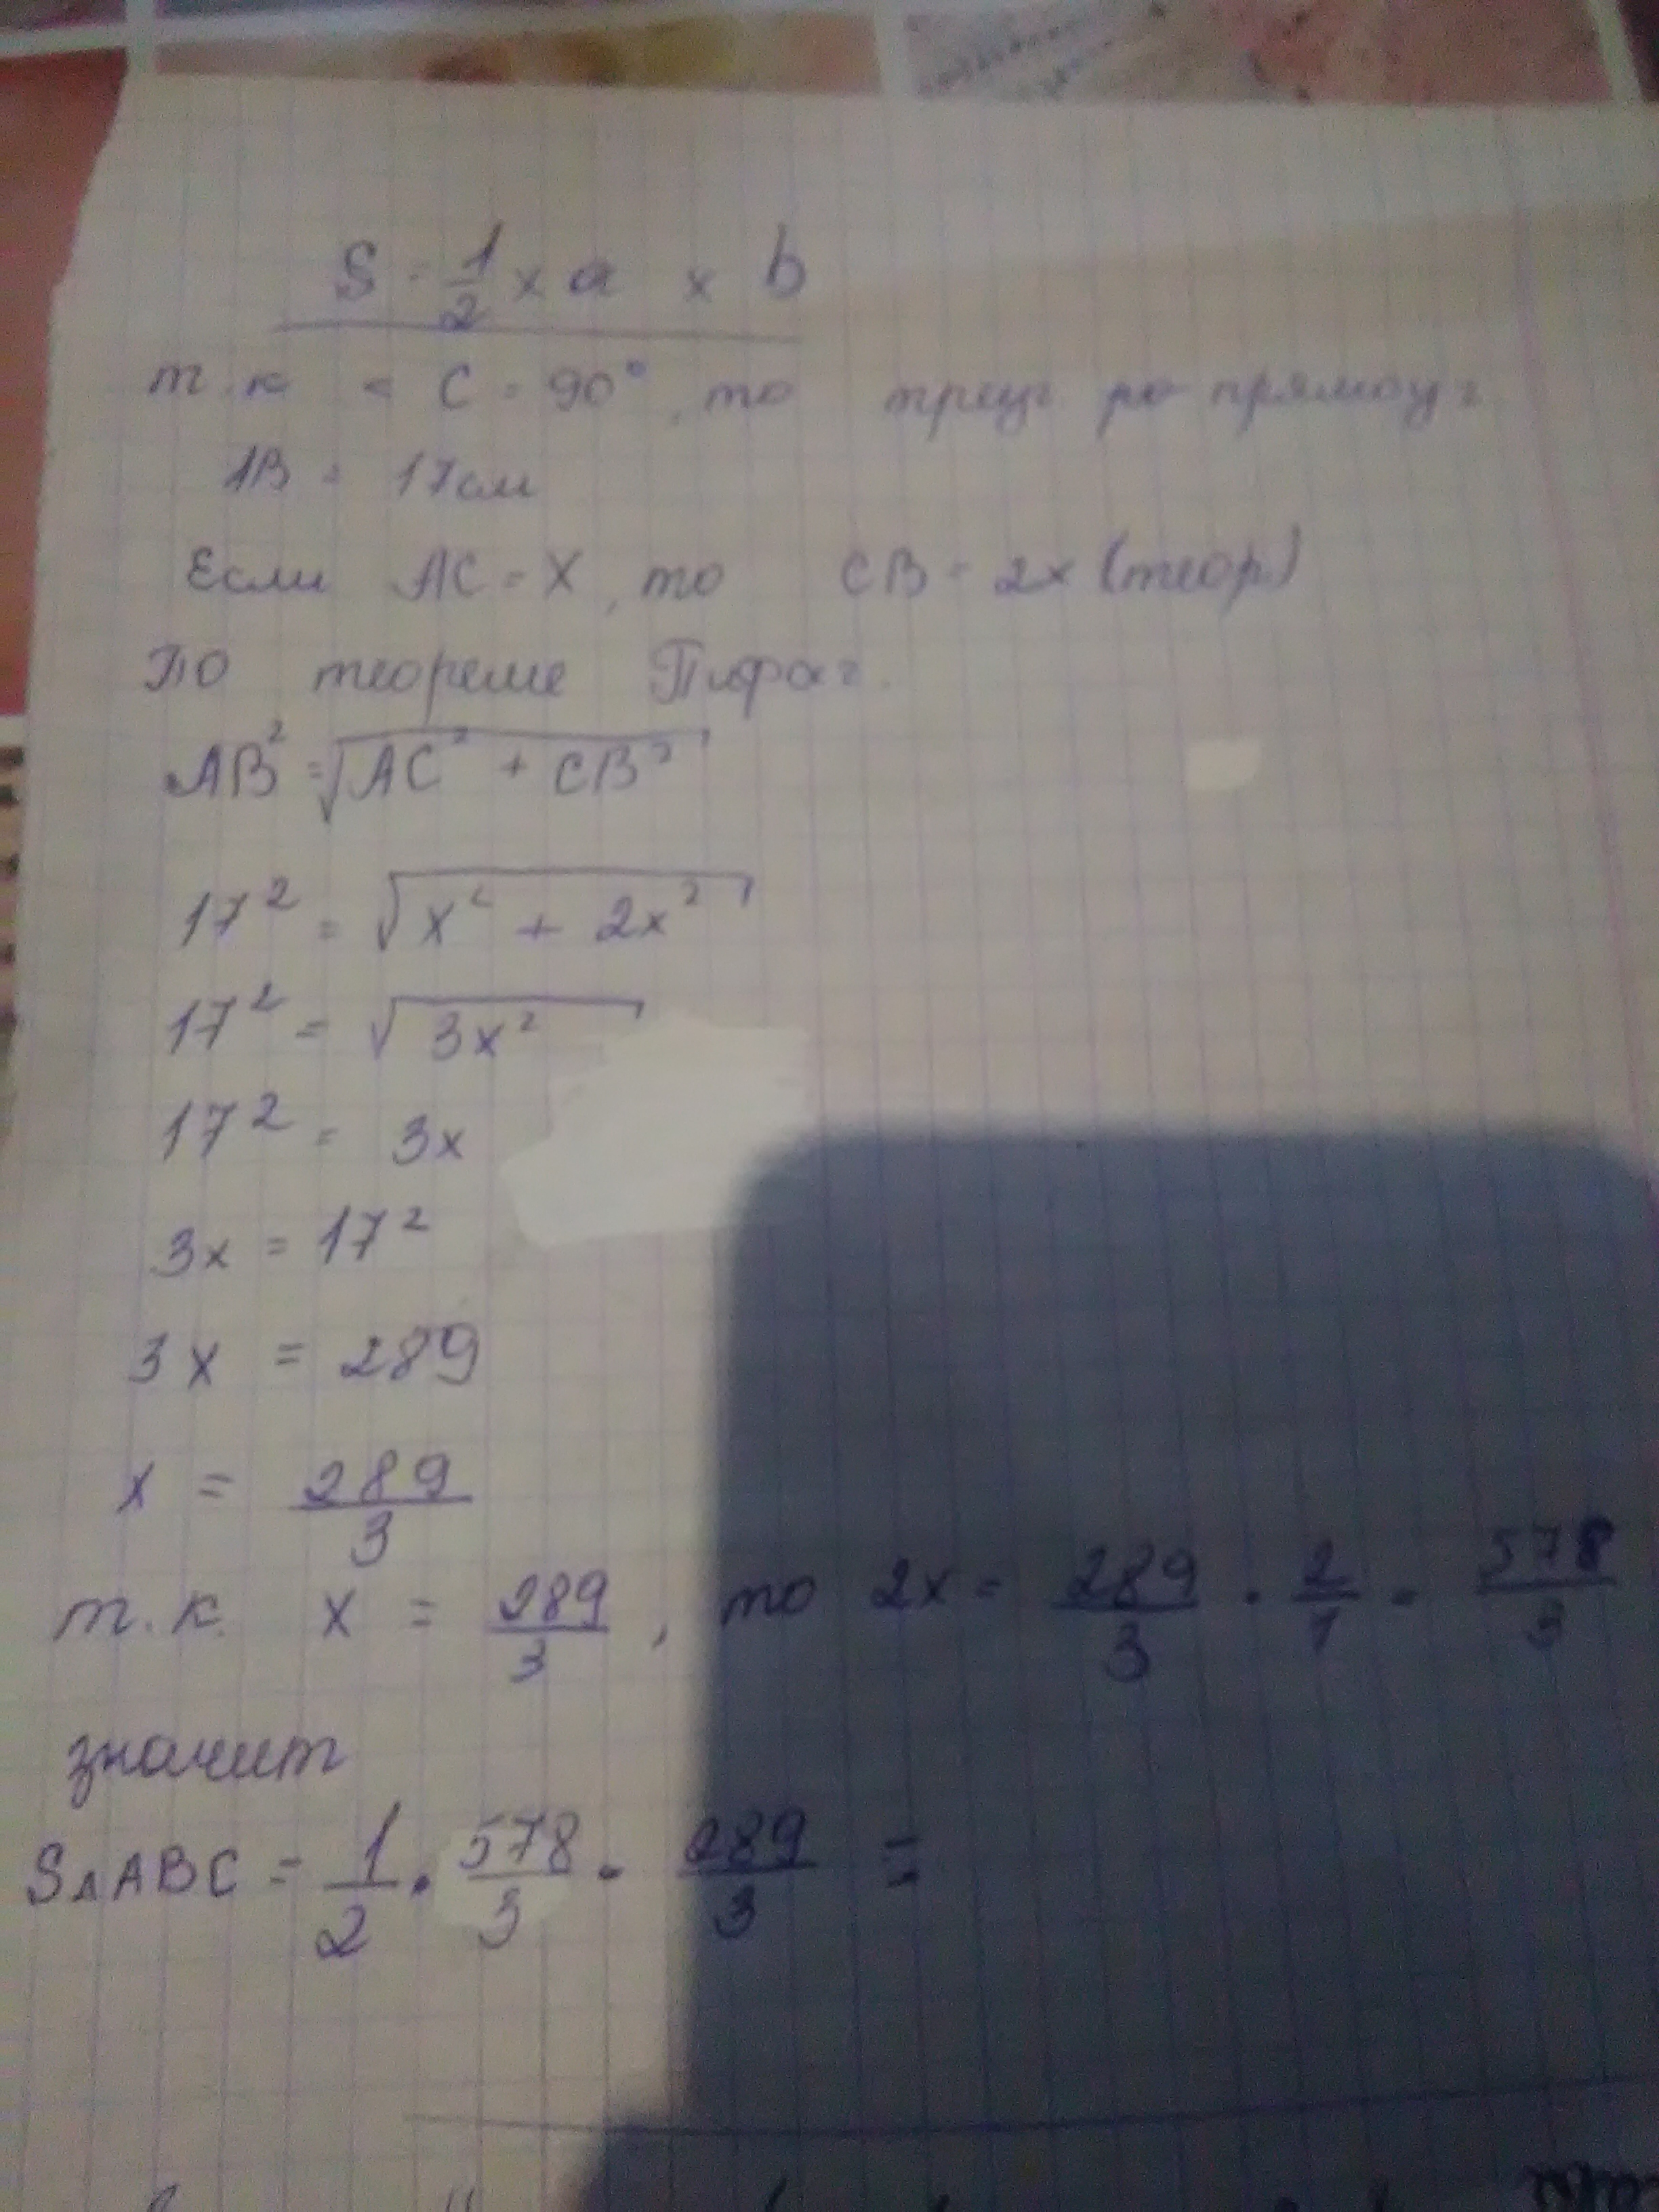 S = 1/2 × a × b
т.к < C = 90°, то прямоуг
AB = 17см
Если AC = X, то CB = 2x (теор.)
По теореме Пифаг.
AB² = √(AC² + CB²)
17² = √(x² + 2x²)
17² = √(3x²)
17² = 3x
3x = 17²
3x = 289
x = 289/3
т.к. x = 289/3, то 2x = 289/3 · 2/1 = 578/3
значит
S△ABC = 1/2 · 578/3 · 289/3 =